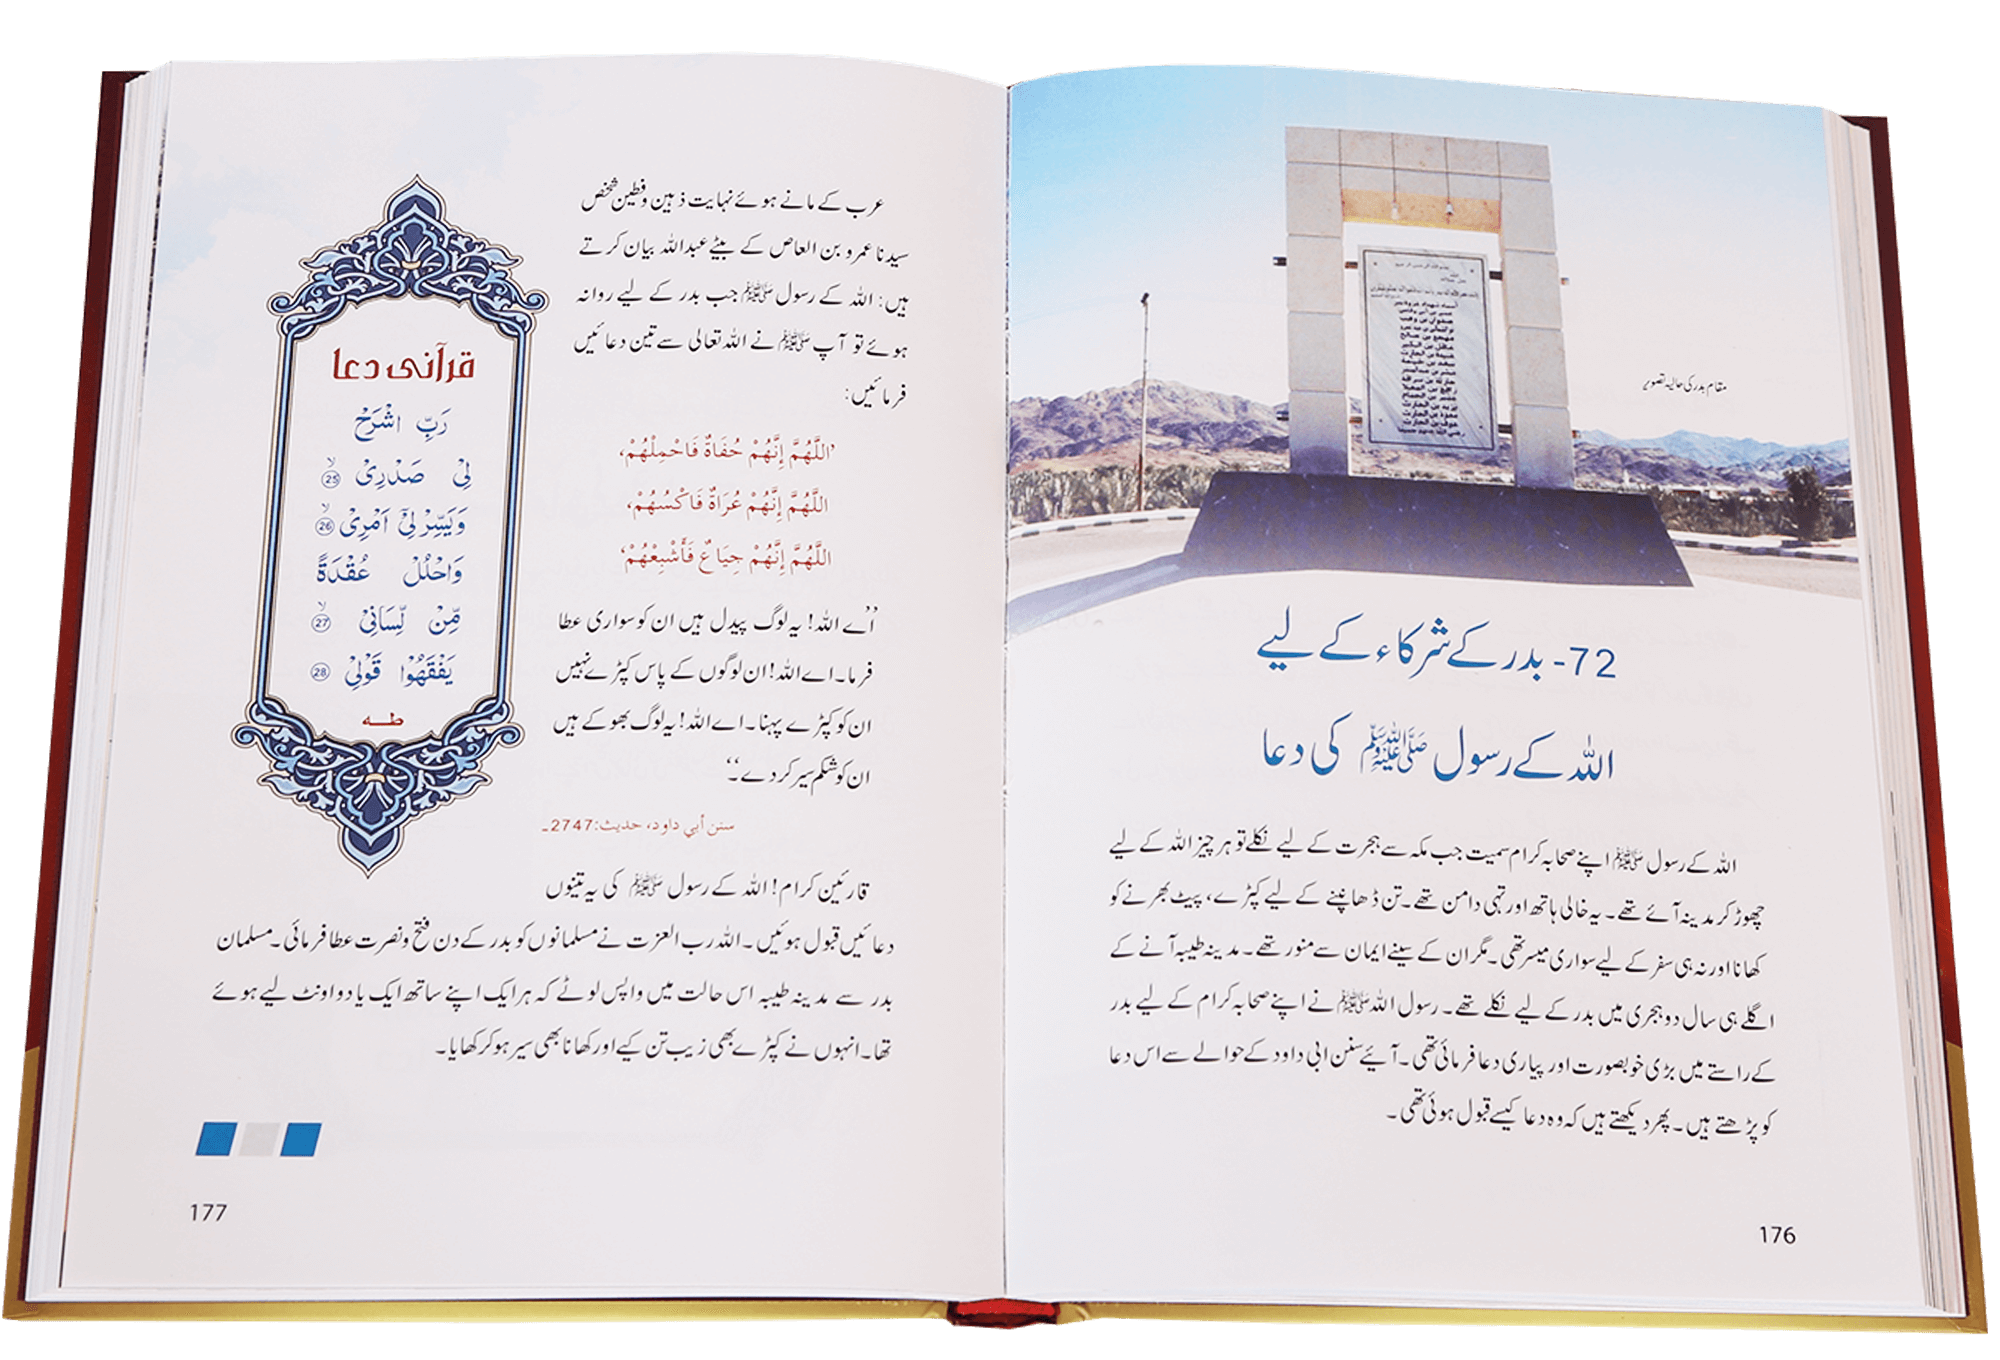 مقام بدر کی حالیہ تصویر
72- بدر کے شرکاء کے لیے
اللہ کے رسول ﷺ کی دعا
اللہ کے رسول ﷺ اپنے صحابہ کرام سمیت جب مکہ سے ہجرت کے لیے نکلے تو ہر چیز اللہ کے لیے
چھوڑ کر مدینہ آئے تھے۔ یہ خالی ہاتھ اور تہی دامن تھے۔ تن ڈھانپنے کے لیے کپڑے، پیٹ بھرنے کو
کھانا اور نہ ہی سفر کے لیے سواری میسر تھی۔ مگر ان کے سینے ایمان سے منور تھے۔ مدینہ طیبہ آنے کے
اگلے ہی سال دو ہجری میں بدر کے لیے نکلے تھے۔ رسول اللہ ﷺ نے اپنے صحابہ کرام کے لیے بدر
کے راستے میں بڑی خوبصورت اور پیاری دعا فرمائی تھی۔ آیئے سنن ابی داود کے حوالے سے اس دعا
کو پڑھتے ہیں۔ پھر دیکھتے ہیں کہ وہ دعا کیسے قبول ہوئی تھی۔
176
عرب کے مانے ہوئے نہایت ذہین و فطین شخص
سیدنا عمرو بن العاص کے بیٹے عبداللہ بیان کرتے
ہیں: اللہ کے رسول ﷺ جب بدر کے لیے روانہ
ہوئے تو آپ ﷺ نے اللہ تعالی سے تین دعائیں
فرمائیں:
’اللَّهُمَّ إِنَّهُمْ حُفَاةٌ فَاحْمِلْهُمْ،
اللَّهُمَّ إِنَّهُمْ عُرَاةٌ فَاكْسُهُمْ،
اللَّهُمَّ إِنَّهُمْ جِيَاعٌ فَأَشْبِعْهُمْ‘
’’اے اللہ! یہ لوگ پیدل ہیں ان کو سواری عطا
فرما۔ اے اللہ! ان لوگوں کے پاس کپڑے نہیں
ان کو کپڑے پہنا۔ اے اللہ! یہ لوگ بھوکے ہیں
ان کو شکم سیر کر دے۔‘‘
سنن أبي داود، حدیث:2747۔
قارئین کرام! اللہ کے رسول ﷺ کی یہ تینوں
دعائیں قبول ہوئیں۔ اللہ رب العزت نے مسلمانوں کو بدر کے دن فتح و نصرت عطا فرمائی۔ مسلمان
بدر سے مدینہ طیبہ اس حالت میں واپس لوٹے کہ ہر ایک اپنے ساتھ ایک یا دو اونٹ لیے ہوئے
تھا۔ انہوں نے کپڑے بھی زیب تن کیے اور کھانا بھی سیر ہو کر کھایا۔
قرآنی دعا
رَبِّ اشْرَحْ
لِیْ صَدْرِیْ 25
وَیَسِّرْ لِیْٓ اَمْرِیْ 26
وَاحْلُلْ عُقْدَةً
مِّنْ لِّسَانِیْ 27
یَفْقَهُوْا قَوْلِیْ 28
طه
177